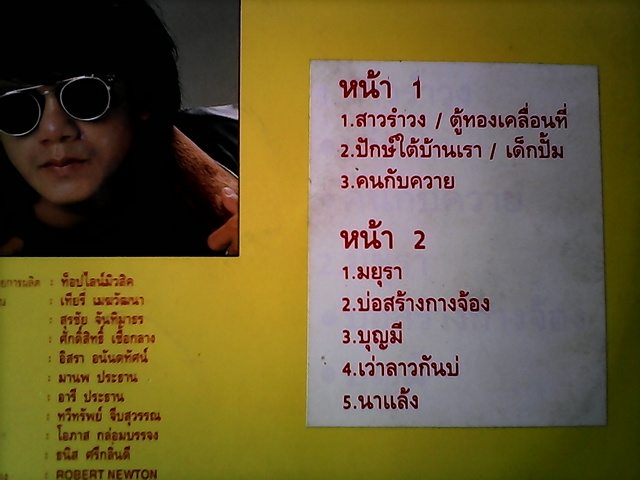 หน้า 1
1.สาวรำวง / ตู้ทองเคลื่อนที่
2.ปักษ์ใต้บ้านเรา / เด็กปั๊ม
3.คนกับควาย
หน้า 2
1.มยุรา
2.บ่อสร้างกางจ้อง
3.บุญมี
4.เว่าลาวกันบ่
5.นาแล้ง
: ท็อปไลน์มิวสิค
: เทียรี่ เมฆวัฒนา
: สุรชัย จันทิมาธร
: ศักดิ์สิทธิ์ เชื้อกลาง
: อิสรา อนันตทัศน์
: มานพ ประธาน
: อารี ประธาน
: ทวีทรัพย์ จีบสุวรรณ
: โอภาส กล่อมบรรจง
: ธนิส ศรีกลิ่นดี
: ROBERT NEWTON